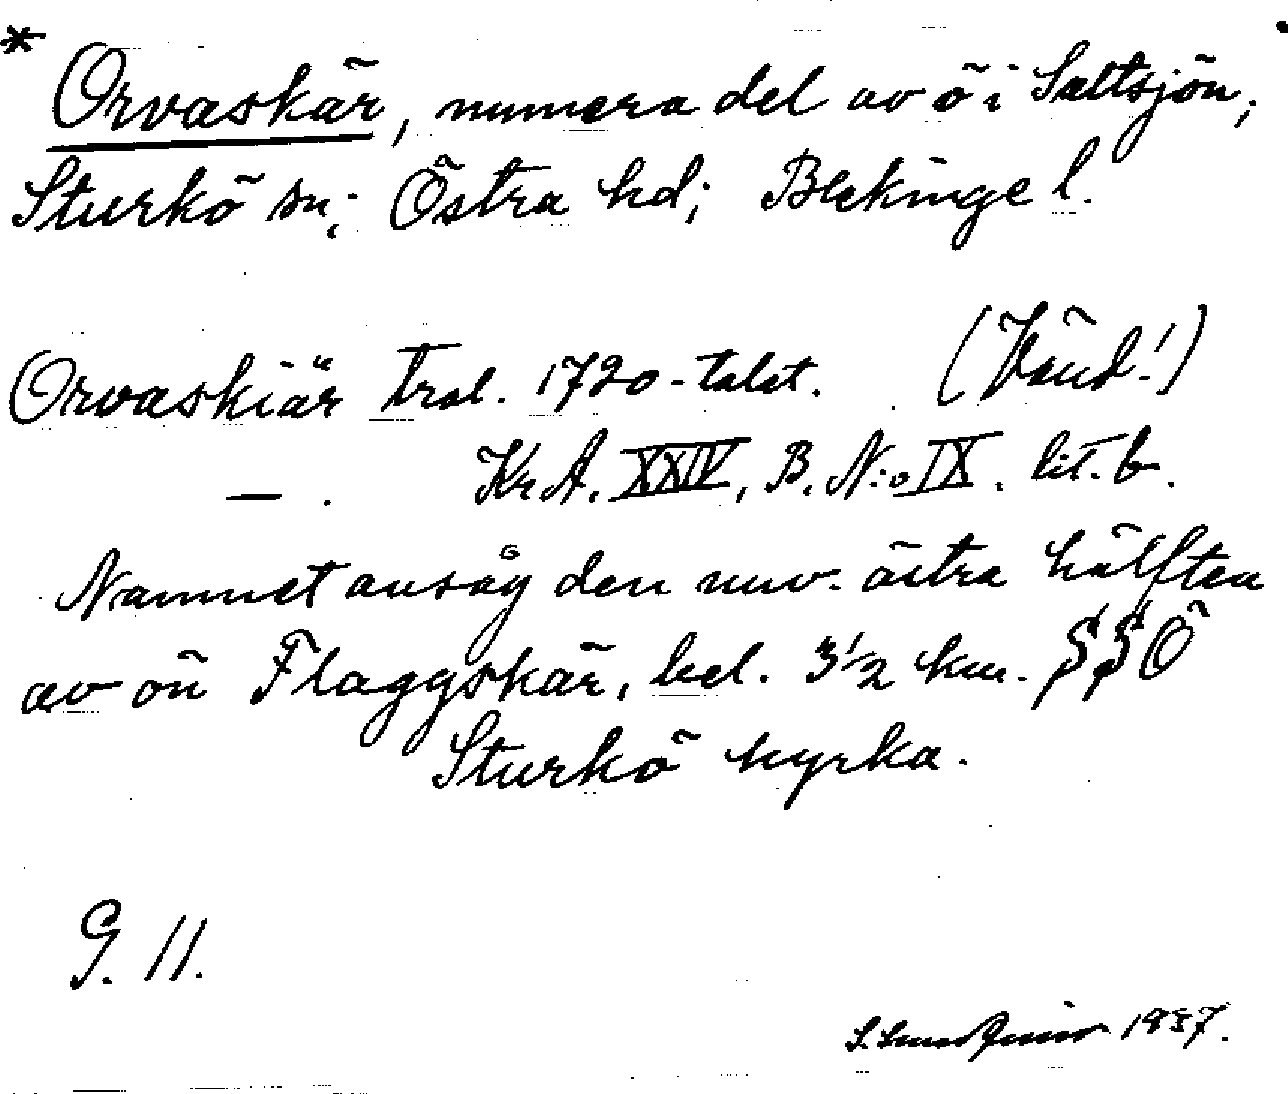 * Orvaskär, numera del av ö i Saltsjön,
Sturkö sn; Östra hd; Blekinge l.
Orvaskiär trol. 1720-talet. (Vänd!)
— . KrA. XXIV, B. N:o IX. lit. b.
Namnet ansåg den nuv. östra hälften
av ön Flaggskär, bel. 3 1/2 km. SSÖ
Sturkö kyrka.
G. 11.
1937.